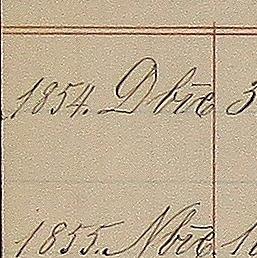 1854. Dbře 3
1855. Nbře 1